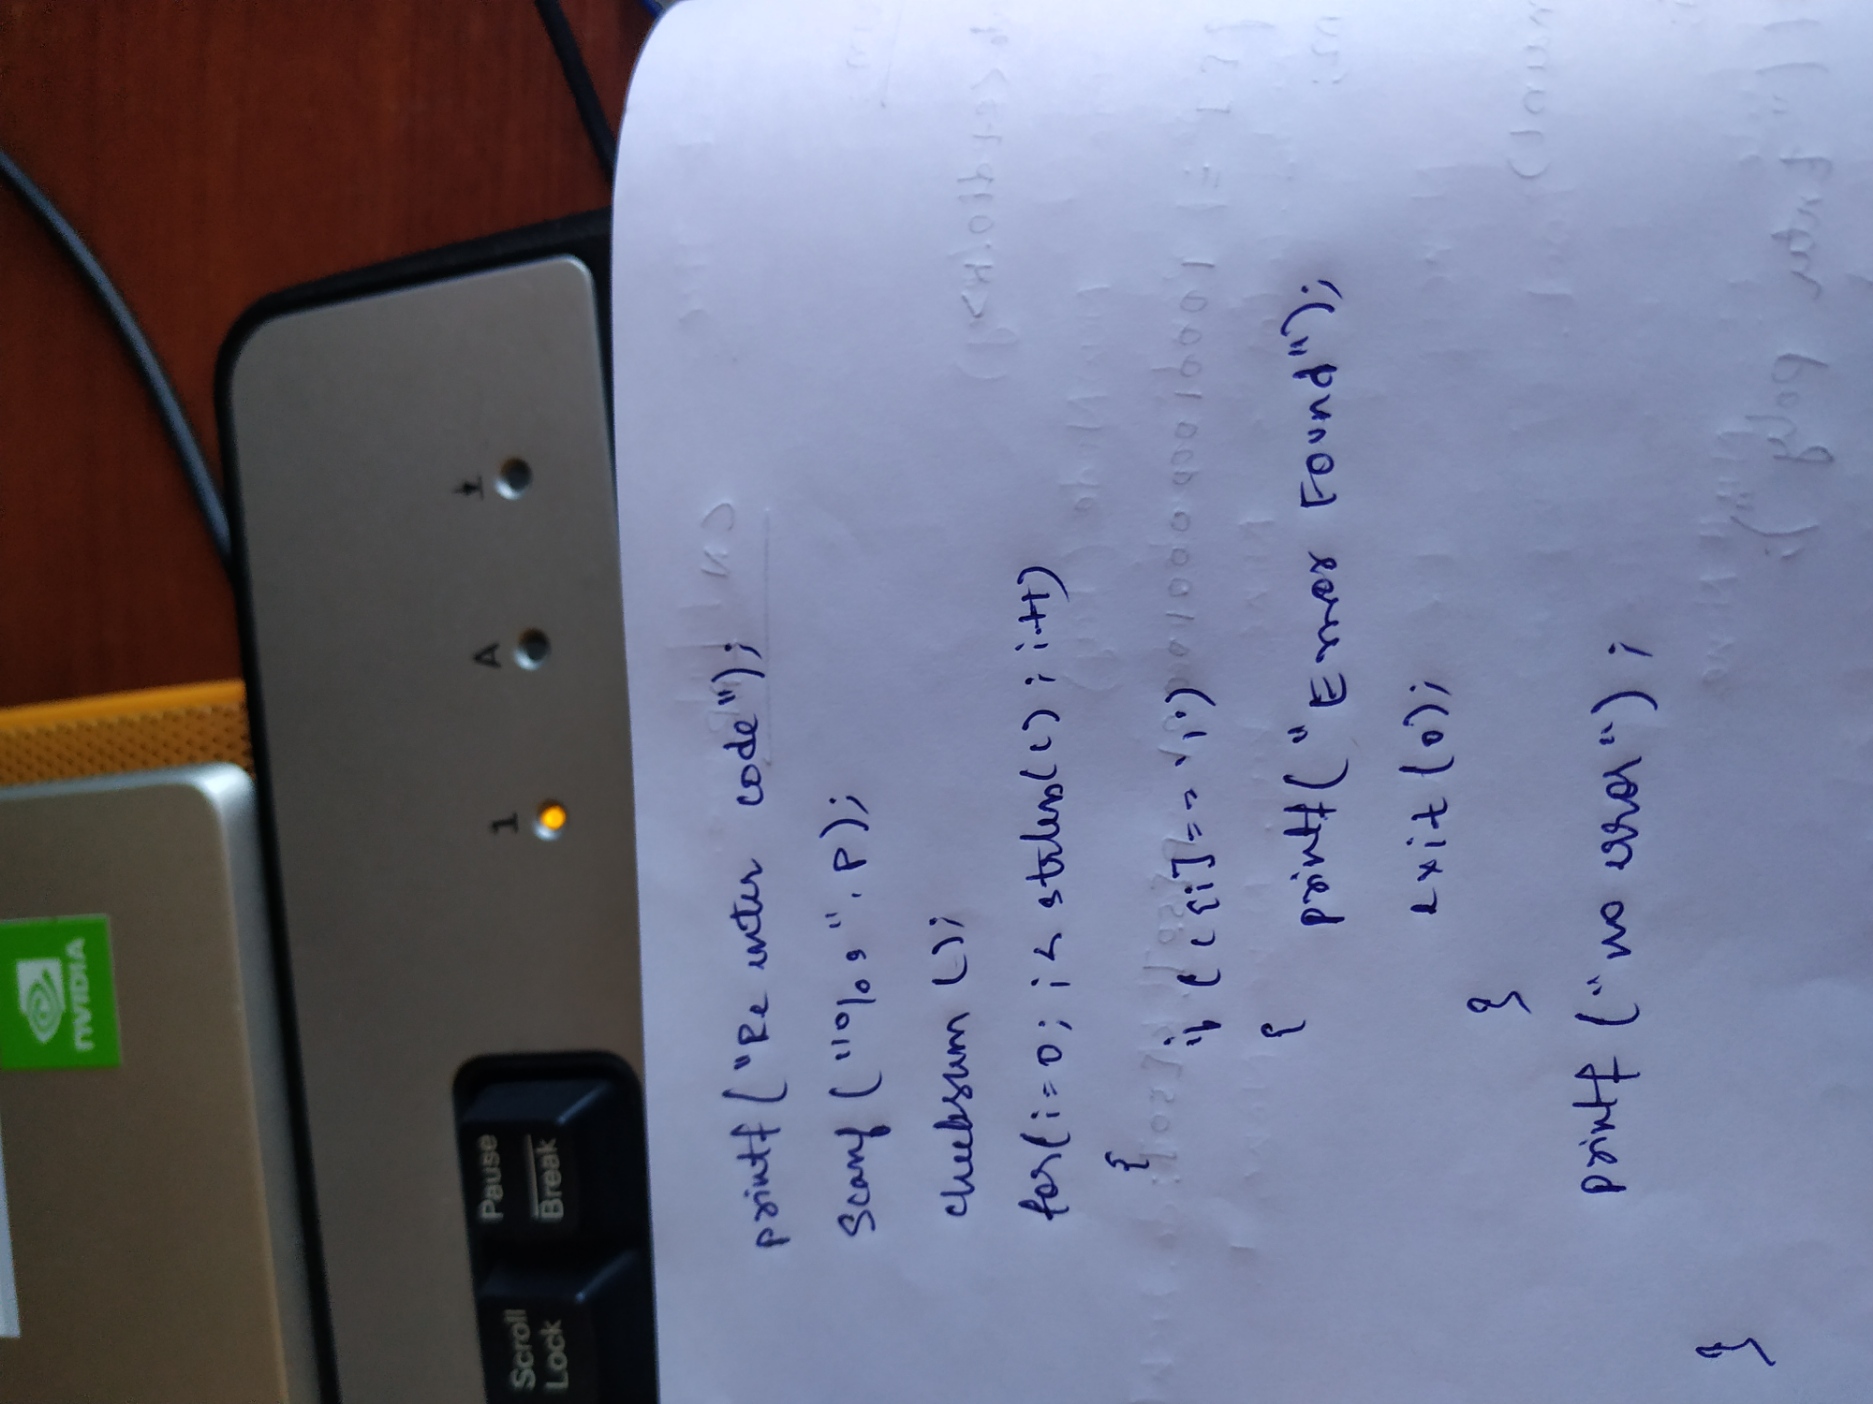 NVIDIA
Scroll Lock
Pause Break
1 A
printf ("Re enter code");
Scanf ("%s", P);
checksum ();
for(i=0; i< strlen(c); i++)
{
if (c[i]== '1')
{
printf("Error Found");
exit (0);
}
printf ("no error");
}